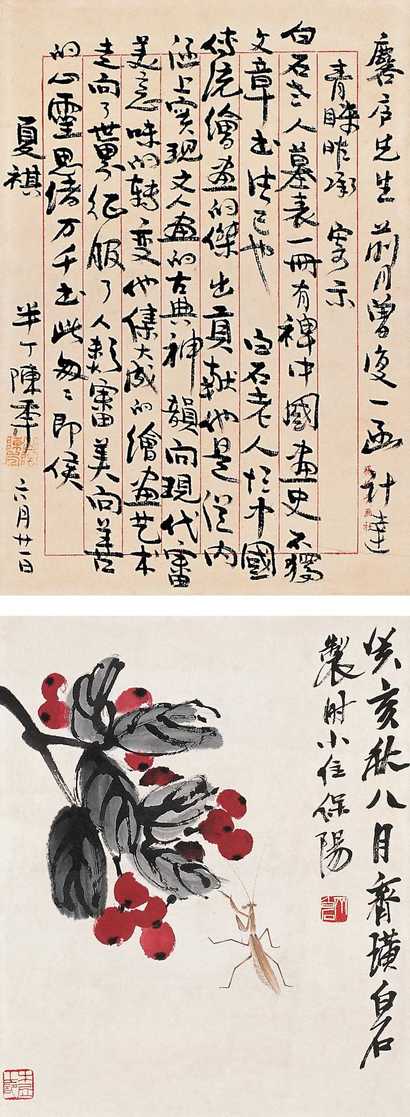 麐庐先生前月曾復一函计達
青睐昨承寄示
白石老人墓表一冊有裨中國画史不獨
文章书法已也 白石老人於中國
传统繪画的傑出貢献他是從内
涵上實現文人画的古典神韻向現代審
美意味的转变也集大成的繪画艺术
走向了世界征服了人类審美向善
的心靈思绪万千书此匆匆即侯
夏祺
半丁陳年 六月廿一日
癸亥秋八月齊璜白石
製时小住保陽